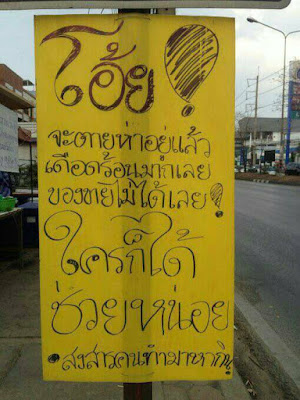 โอ้ย!
จะตายห่าอยู่แล้ว
เดือดร้อนมากเลย
ของขายไม่ได้เลย!
ใครก็ได้
ช่วยหน่อย
สงสารคนทำมาหากิน